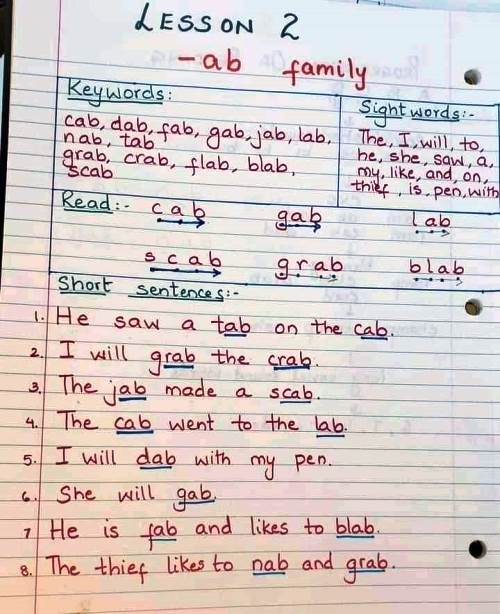 LESSON 2
-ab family
Keywords:
cab, dab, fab, gab, jab, lab,
nab, tab
grab, crab, flab, blab,
scab
Sight words:-
The, I, will, to,
he, she, saw, a,
my, like, and, on,
thief, is, pen, with
Read:- cab gab lab
scab grab blab
Short sentences:-
1. He saw a tab on the cab.
2. I will grab the crab.
3. The jab made a scab.
4. The cab went to the lab.
5. I will dab with my pen.
6. She will gab.
7 He is fab and likes to blab.
8. The thief likes to nab and grab.